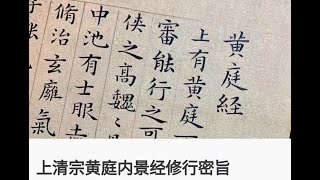 黄庭經
上有黄庭
審能行之可
侠之高巍〻
中池有士服
脩治玄廱氣
上清宗黄庭内景经修行密旨